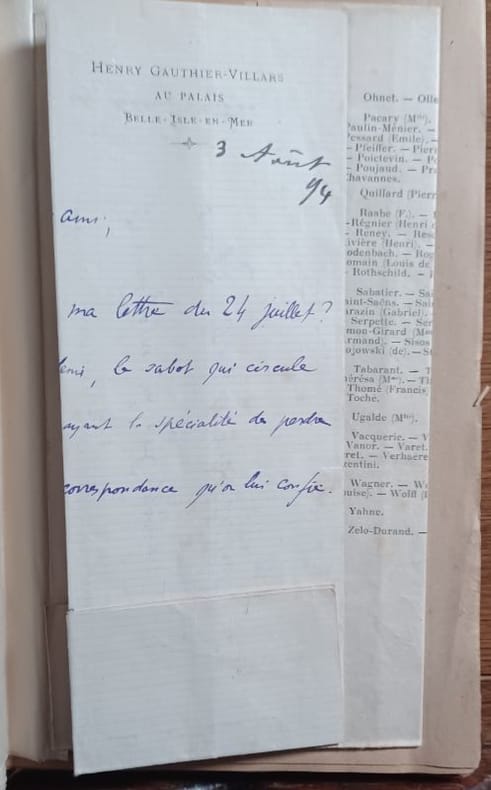 HENRY GAUTHIER-VILLARS
AU PALAIS
BELLE-ISLE-EN-MER
3 Août
94
ami,
ma lettre du 24 juillet?
le sabot qui circule
ayant la spécialité de perdre
correspondance qu'on lui confie.
Ohnet. — Olle
Pacary (Mme).
Paulin-Ménier. —
Pessard (Emile). —
— Pfeiffer. — Pier
— Poictevin. — P
— Poujaud. — Pr
Chavannes.
Quillard (Pierr
Raabe (F.). — 
-Régnier (Henri d
— Reney. — Res
ivière (Henri). —
odenbach. — Rog
omain (Louis de
— Rothschild. —
Sabatier. — Sa
aint-Saëns. — Sai
arazin (Gabriel).
Serpette. — Ser
mon-Girard (M
rmand). — Sisos
ojowski (de). — S
Tabarant. — T
hérésa (Mme). — Th
Thomé (Francis)
Toché.
Ugalde (Mme).
Vacquerie. — V
Vanor. — Varet.
ret. — Verhaere
entini.
Wagner. — W
ouise). — Wolff (
Yahne.
Zelo-Durand. —